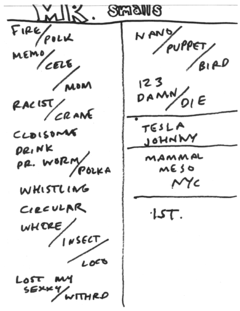 MR. SMalls
FIRE/POLK
MEMO/CELE/MOM
RACIST/CRANE
CLOISONNE
DRINK
DR. WORM/POLKA
WHISTLING
CIRCULAR
WHERE/INSECT/LOCO
LOST MY
SEXXY/WITHRD
NANO/PUPPET/BIRD
123
DAMN/DIE
TESLA
JOHNNY
MAMMAL
MESO
NYC
IST.